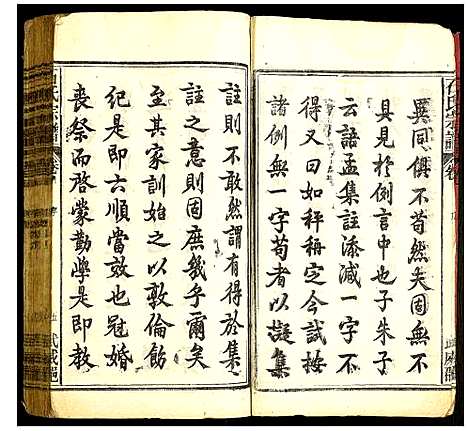 異同俱不苟然矣固無不
具見於例言中也子朱子
云語孟集註添減一字不
得又曰如秤稱定今試按
諸例無一字苟者以擬集
註則不敢然謂有得於集
註之意則固庶幾乎爾矣
至其家訓始之以敦倫飭
紀是即六順當效也冠婚
喪祭而啓蒙勸學是即教
氏宗譜
武威